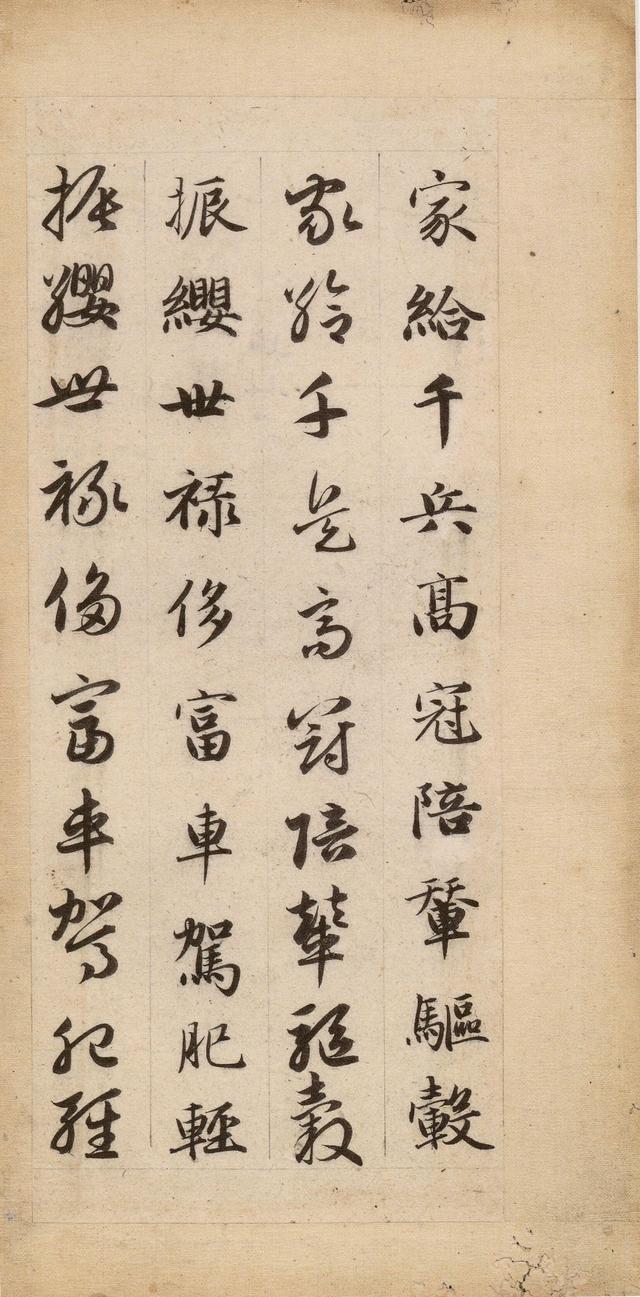 家給千兵高冠陪輦驅轂
家給千兵高冠陪輦驅轂
振纓世祿侈富車駕肥輕
振纓世祿侈富車駕肥輕